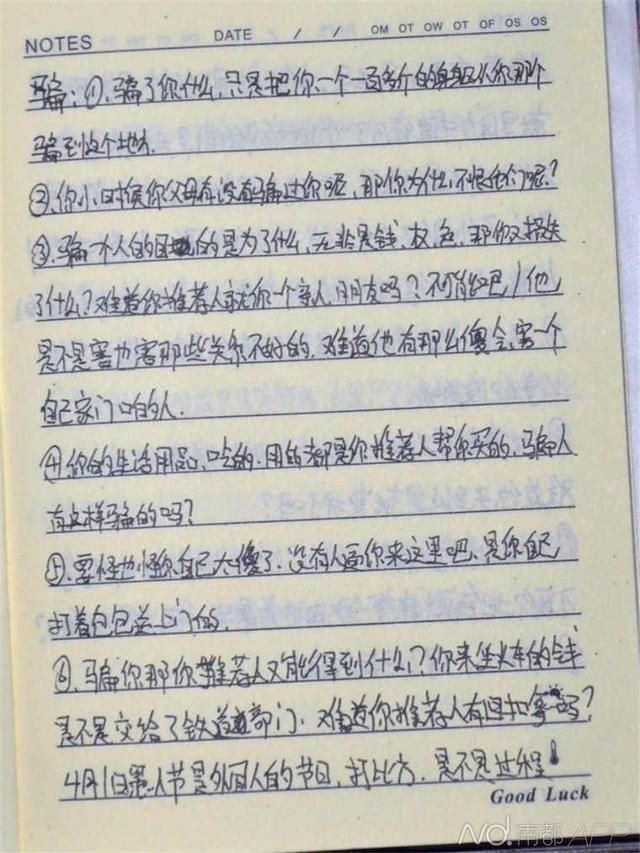 NOTES DATE / / OM OT OW OT OF OS OS
骗:①、骗了你什么,只是把你一个一百多斤的身躯从你那个
骗到这个地方.
②、你小时候你父母有没有骗过你呢,那你为什么不恨他们呢?
③、骗一个人的目的是为了什么,无非是钱、权、色,那你又损失
了什么?难道你推荐人就你一个亲人、朋友吗?不可能吧!他
是不是害也害那些关系不好的.难道他有那么傻会害一个
自己家门口的人.
④你的生活用品、吃的、用的都是你推荐人帮你买的,骗人
有这样骗的吗?
⑤、要怪也怪你自己太傻了,没有人逼你来这里吧,是你自己
打着包包送上门的.
⑥、骗你那你推荐人又能得到什么?你来坐火车的钱
是不是交给了铁道部门.难道你推荐人有回扣拿吗?
4月1日愚人节是外国人的节日,打比方.是不是过程!
Good Luck
No.南都APP